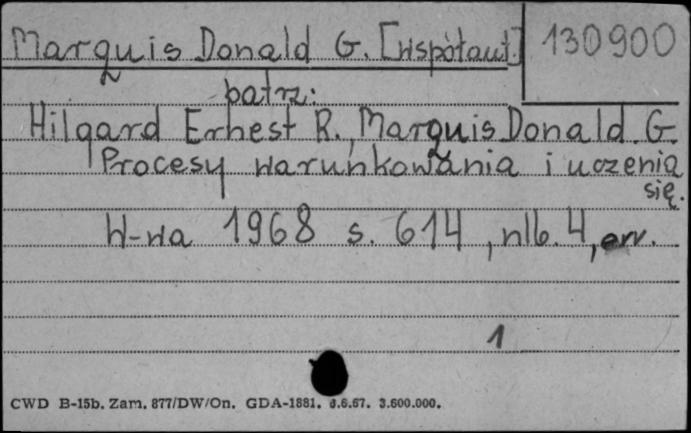 Marquis Donald G. [współaut.] 130900
patrz:
Hilgard Ernest R., Marquis Donald G.
Procesy warunkowania i uczenia
się.
W-wa 1968 s. 614, nlb. 4, err.
1
CWD B-15b. Zam. 877/DW/On. GDA-1881. 6.6.67. 3.600.000.